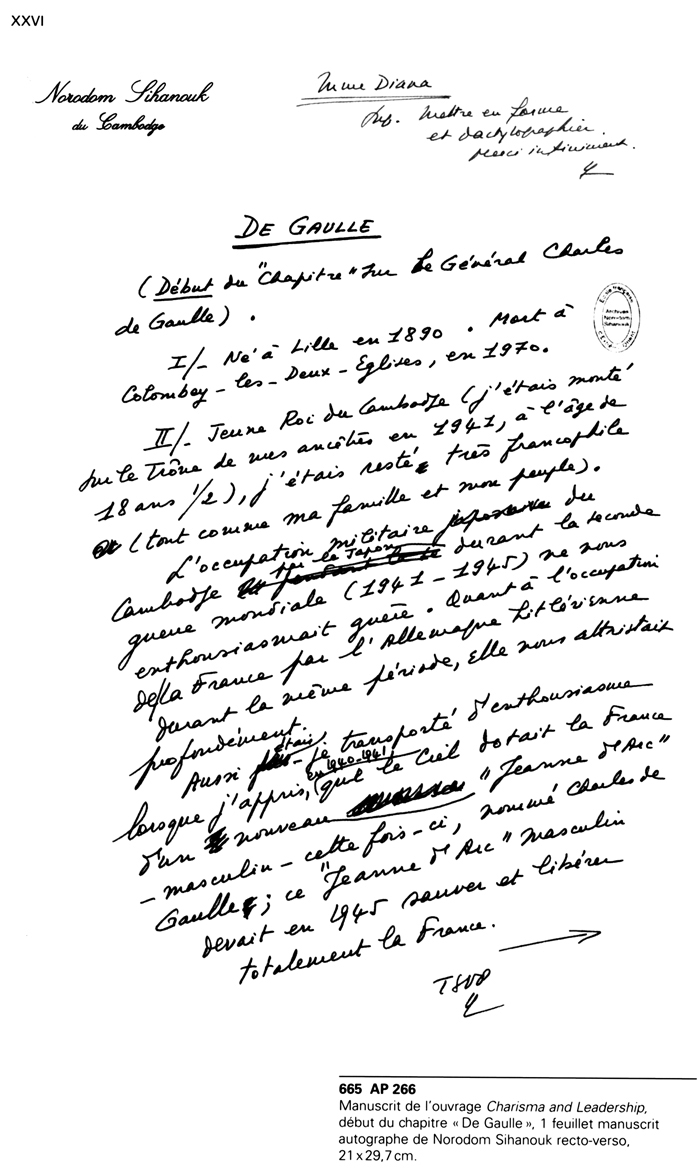 XXVI
Norodom Sihanouk
du Cambodge
Mme Diana
Mettre en forme
et dactylographier.
Merci infiniment.
DE GAULLE
(Début du "Chapitre" sur le Général Charles
de Gaulle).
I/- Né à Lille en 1890. Mort à
Colombey-les-Deux-Eglises, en 1970.
II/- Jeune Roi du Cambodge (j'étais monté
sur le Trône de mes ancêtres en 1941, à l'âge de
18 ans 1/2), j'étais resté très francophile
(tout comme ma famille et mon peuple).
L'occupation militaire du
Cambodge par le Japon durant la seconde
guerre mondiale (1941-1945) ne nous
enthousiasmait guère. Quant à l'occupation
de la France par l'Allemagne hitlérienne
durant la même période, elle nous attristait
profondément.
Aussi étais-je transporté d'enthousiasme
lorsque j'appris, en 1940-1941, que le Ciel dotait la France
d'un nouveau "Jeanne d'Arc"
-masculin-cette fois-ci, nommé Charles de
Gaulle; ce "Jeanne d'Arc" masculin
devait en 1945 sauver et libérer
totalement la France.
TSVP
665 AP 266
Manuscrit de l'ouvrage Charisma and Leadership,
début du chapitre « De Gaulle », 1 feuillet manuscrit
autographe de Norodom Sihanouk recto-verso,
21 x 29,7 cm.